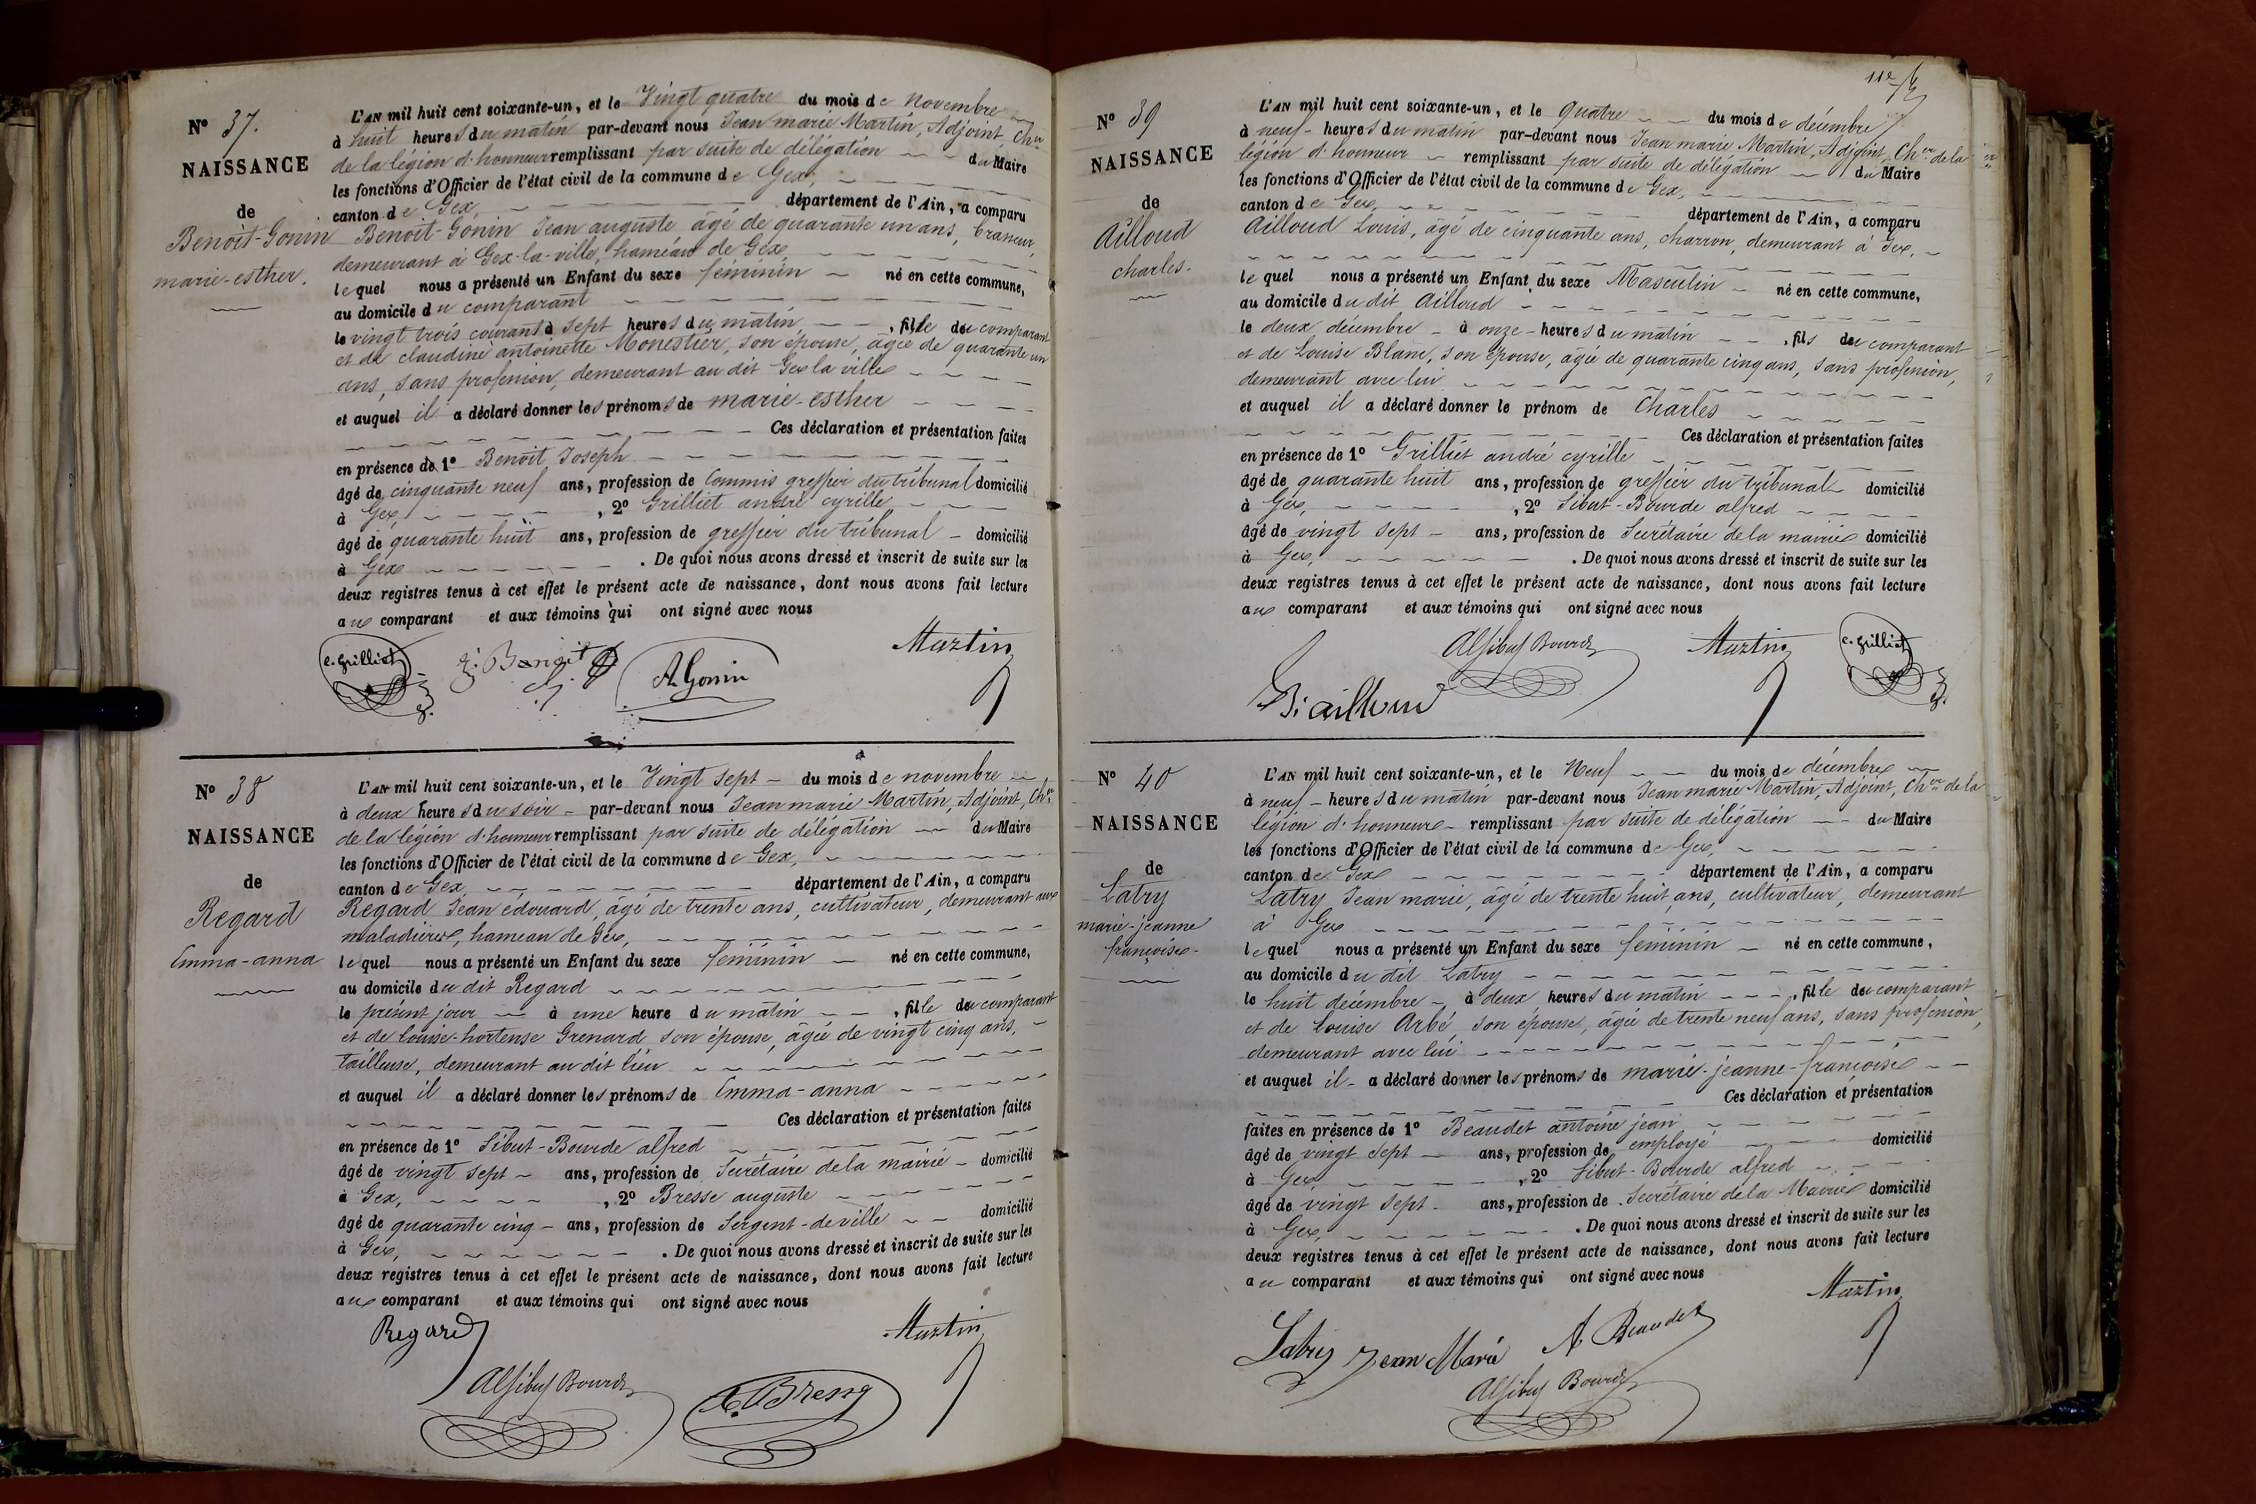 Nº 37.
NAISSANCE
de
Benoit-Gonin
marie-esther.
L'AN mil huit cent soixante-un, et le Vingt quatre du mois de novembre
à huit heures du matin par-devant nous Jean marie Martin, Adjoint, Cher
de la légion d'honneur remplissant par suite de délégation du Maire
les fonctions d'Officier de l'état civil de la commune de Gex,
canton de Gex, département de l'Ain, a comparu
Benoit-Gonin Jean auguste âgé de quarante un ans,
demeurant à Gex-la-ville, hameau de Gex,
lequel nous a présenté un Enfant du sexe féminin né en cette commune,
au domicile du comparant
le vingt trois courant à sept heures du matin, fille du comparant
et de claudine antoinette Monestier, son épouse, âgée de quarante un
ans, sans profession, demeurant au dit Gex la ville
et auquel il a déclaré donner les prénoms de marie-esther
Ces déclaration et présentation faites
en présence de 1º Benoit Joseph
âgé de cinquante neuf ans, profession de Commis greffier du tribunal domicilié
à Gex, , 2º Grilliet andré cyrille
âgé de quarante huit ans, profession de greffier du tribunal domicilié
à Gex . De quoi nous avons dressé et inscrit de suite sur les
deux registres tenus à cet effet le présent acte de naissance, dont nous avons fait lecture
aux comparant et aux témoins qui ont signé avec nous
C. Grilliet J. Benoit A. Gonin Martin
Nº 38
NAISSANCE
de
Regard
Emma-anna
L'AN mil huit cent soixante-un, et le Vingt sept du mois de novembre
à deux heures du soir par-devant nous Jean marie Martin, Adjoint, Cher
de la légion d'honneur remplissant par suite de délégation du Maire
les fonctions d'Officier de l'état civil de la commune de Gex,
canton de Gex, département de l'Ain, a comparu
Regard Jean édouard, âgé de trente ans, cultivateur, demeurant aux
maladières, hameau de Gex,
lequel nous a présenté un Enfant du sexe féminin né en cette commune,
au domicile du dit Regard
le présent jour à une heure du matin, fille du comparant
et de Louise-hortense Grenard son épouse, âgée de vingt cinq ans,
tailleuse, demeurant au dit lieu
et auquel il a déclaré donner les prénoms de Emma-anna
Ces déclaration et présentation faites
en présence de 1º Sibut-Bourde alfred
âgé de vingt sept ans, profession de Secrétaire de la mairie domicilié
à Gex, , 2º Bresse auguste
âgé de quarante cinq ans, profession de Sergent-de ville domicilié
à Gex, . De quoi nous avons dressé et inscrit de suite sur les
deux registres tenus à cet effet le présent acte de naissance, dont nous avons fait lecture
aux comparant et aux témoins qui ont signé avec nous
Regard Martin
Al Sibut Bourde A. Bresse
11e
Nº 39
NAISSANCE
de
Ailloud
charles.
L'AN mil huit cent soixante-un, et le Quatre du mois de décembre
à neuf heures du matin par-devant nous Jean marie Martin, Adjoint, Cher de la
légion d'honneur remplissant par suite de délégation du Maire
les fonctions d'Officier de l'état civil de la commune de Gex,
canton de Gex, département de l'Ain, a comparu
Ailloud Louis, âgé de cinquante ans, charron, demeurant à Gex,
lequel nous a présenté un Enfant du sexe Masculin né en cette commune,
au domicile du dit Ailloud
le deux décembre à onze heures du matin, fils du comparant
et de Louise Blanc, son épouse, âgée de quarante cinq ans, sans profession,
demeurant avec lui
et auquel il a déclaré donner le prénom de Charles
Ces déclaration et présentation faites
en présence de 1º Grilliet andré cyrille
âgé de quarante huit ans, profession de greffier du tribunal domicilié
à Gex, , 2º Sibut-Bourde alfred
âgé de vingt sept ans, profession de Secrétaire de la mairie domicilié
à Gex, . De quoi nous avons dressé et inscrit de suite sur les
deux registres tenus à cet effet le présent acte de naissance, dont nous avons fait lecture
aux comparant et aux témoins qui ont signé avec nous
ailloud Al Sibut Bourde Martin C. Grilliet
Nº 40
NAISSANCE
de
Latry
marie-jeanne
françoise-
L'AN mil huit cent soixante-un, et le Neuf du mois de décembre
à neuf heures du matin par-devant nous Jean marie Martin, Adjoint, Cher de la
légion d'honneur remplissant par suite de délégation du Maire
les fonctions d'Officier de l'état civil de la commune de Gex,
canton de Gex département de l'Ain, a comparu
Latry Jean marie, âgé de trente huit ans, cultivateur, demeurant
à Gex
lequel nous a présenté un Enfant du sexe féminin né en cette commune,
au domicile du dit Latry
le huit décembre à deux heures du matin, fille du comparant
et de Louise Arbé, son épouse, âgée de trente neuf ans, sans profession,
demeurant avec lui
et auquel il a déclaré donner les prénoms de marie-jeanne-françoise
Ces déclaration et présentation
faites en présence de 1º Beaudet antoine jean
âgé de vingt sept ans, profession de employé domicilié
à Gex , 2º Sibut-Bourde alfred
âgé de vingt sept ans, profession de Secrétaire de la Mairie domicilié
à Gex, . De quoi nous avons dressé et inscrit de suite sur les
deux registres tenus à cet effet le présent acte de naissance, dont nous avons fait lecture
au comparant et aux témoins qui ont signé avec nous
Martin
Latry Jean Marie A. Beaudet
Al Sibut Bourde